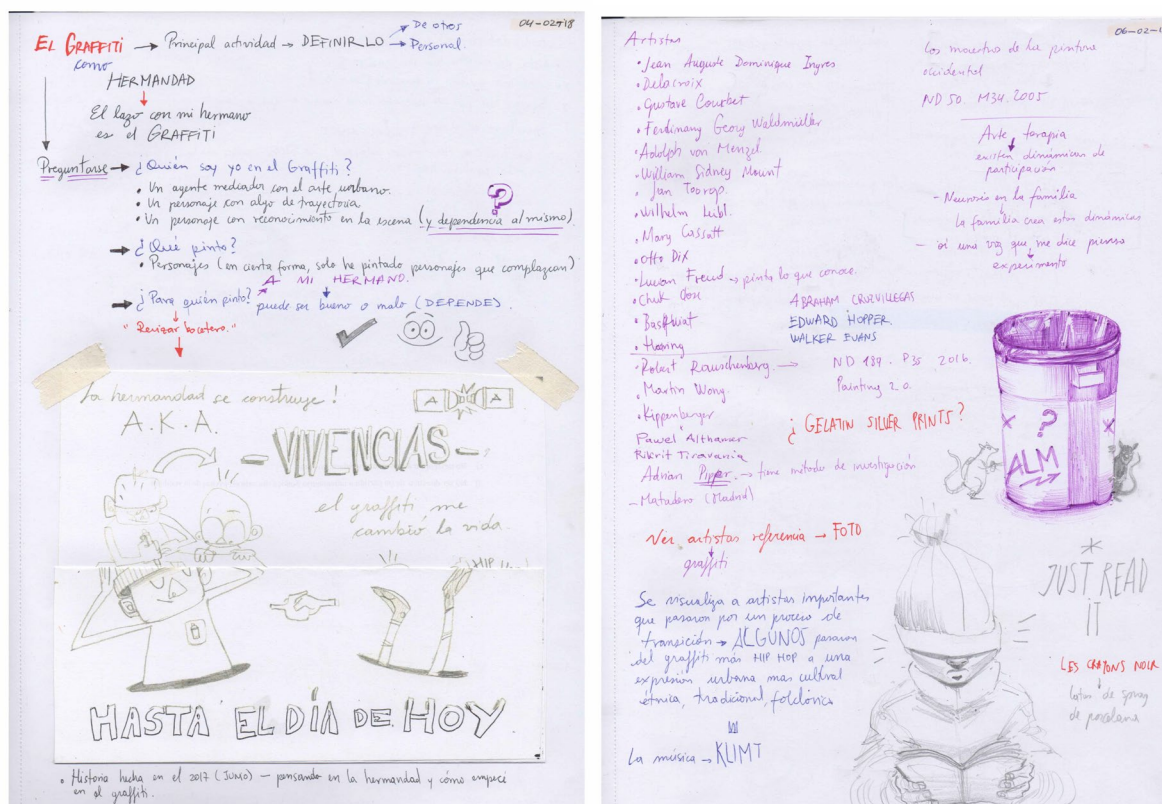 04-02-18
EL GRAFFITI → Principal actividad → DEFINIRLO → De otros
→ Personal.
como
HERMANDAD
El lazo con mi hermano
es el GRAFFITI
Preguntarse → ¿Quién soy yo en el Graffiti?
• Un agente mediador con el arte urbano.
• Un personaje con algo de trayectoria.
• Un personaje con reconocimiento en la escena (y dependencia al mismo)
?
→ ¿Qué pinto?
• Personajes (en cierta forma, solo he pintado personajes que complazcan)
A MI HERMANO.
→ ¿Para quién pinto? puede ser bueno o malo (DEPENDE).
"Revisar bocetero."
La hermandad se construye!
A D A
A.K.A.
- VIVENCIAS -
el graffiti me
cambió la vida.
HIP
HASTA EL DÍA DE HOY
• Historia hecha en el 2017 (JUNIO) — pensando en la hermandad y cómo empecé
en el graffiti.
06-02-1
Artistas
• Jean Auguste Dominique Ingres
• Delacroix
• Gustave Courbet
• Ferdinany Georg Waldmüller
• Adolph von Menzel.
• William Sidney Mount
• Jan Toorop.
• Wilhelm Leibl.
• Mary Cassatt
• Otto Dix
• Lucian Freud → pinta lo que conoce.
• Chuk Close
• Basquiat
• Haring
• Robert Rauschenberg. → ND 189. P35 2016.
Painting 2.0.
• Martin Wong.
• Kippenberger
Pawel Althamer
Rikrit Tiravania
Adrian Pipper. → tiene método de investigación
- Matadero (Madrid)
Los maestros de la pintura
occidental
ND 50. M34. 2005
Arte terapia
existen dinámicas de
participación
- Neurosis en la familia
La familia crea estas dinámicas
- oí una voz que me dice
experimento
ABRAHAM CRUZVILLEGAS
EDWARD HOPPER.
WALKER EVANS
¿GELATIN SILVER PRINTS?
?
ALM
Ver artistas referencia → FOTO
graffiti
Se visualiza a artistas importantes
que pasaron por un proceso de
transición → ALGUNOS pasaron
del graffiti más HIP HOP a una
expresión urbana mas cultural
étnica, tradicional, folclórica
La música → KLIMT
*
JUST READ
IT
LES CRAYONS NOIR
latas de spray
de porcelana